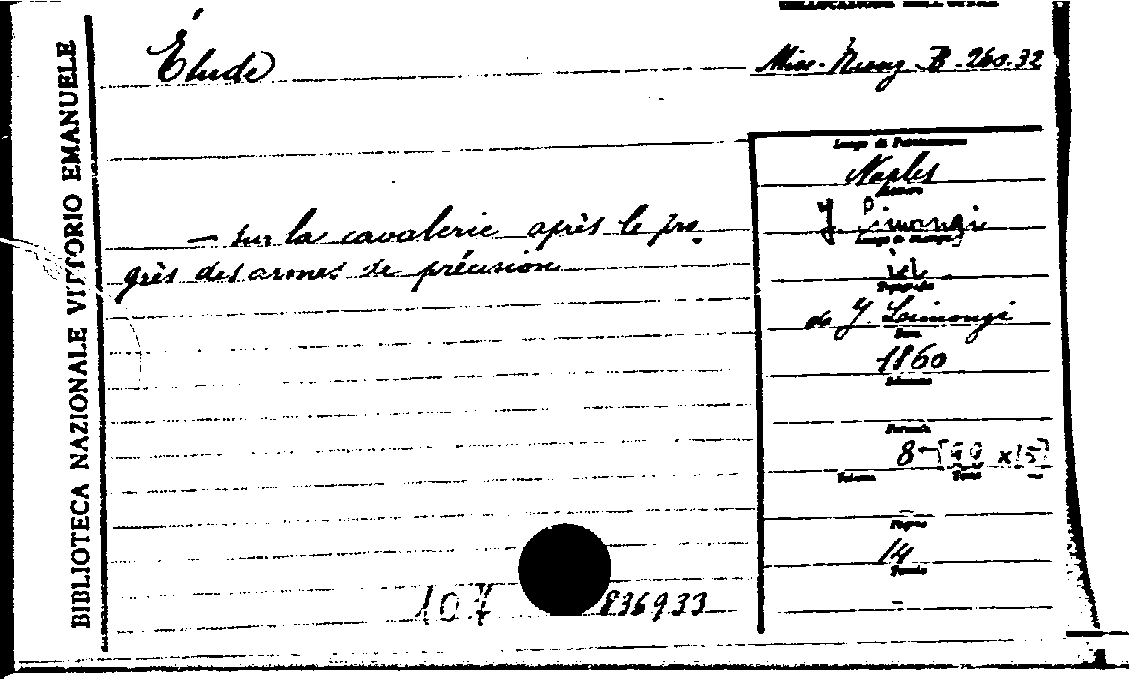 COLLOCAZIONE DELL'OPERA
Étude
Misc. Numg. B. 260.32
BIBLIOTECA NAZIONALE VITTORIO EMANUELE
— sur la cavalerie après le pro-
grès des armes de précision
Luogo di Pubblicazione
Naples
Y. Limongi
Luogo di Stampa
id
Tipografia
de Y. Limongi
Data
1860
Edizione
Formato
8- [22 x 15]
Volume
Tomo
Pagine
14
Tavole
-
107
836933